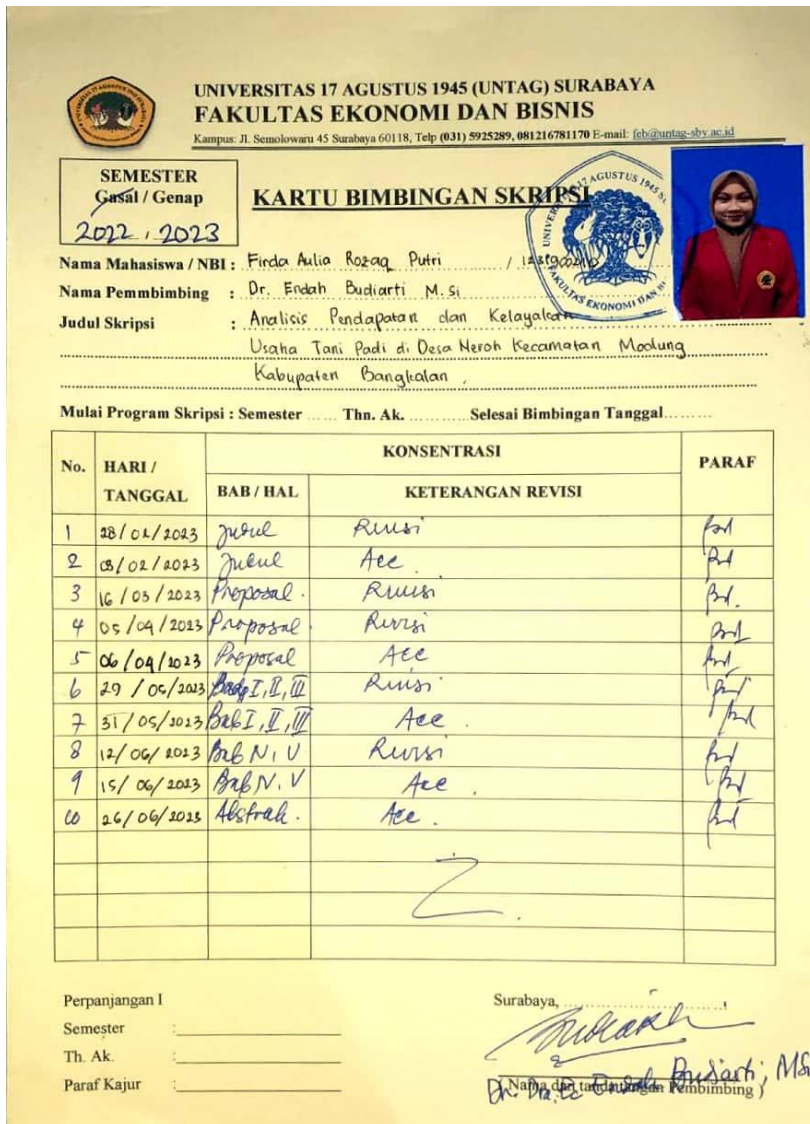 UNIVERSITAS 17 AGUSTUS 1945 (UNTAG) SURABAYA
FAKULTAS EKONOMI DAN BISNIS
Kampus: Jl. Semolowaru 45 Surabaya 60118, Telp (031) 5925289, 081216781170 E-mail: feb@untag-sby.ac.id
SEMESTER
Gasal / Genap
2022 . 2023
KARTU BIMBINGAN SKRIPSI
Nama Mahasiswa / NBI : Firda Aulia Rozaq Putri /
Nama Pemmbimbing : Dr. Endah Budiarti M.Si
Judul Skripsi : Analisis Pendapatan dan Kelayakan
Usaha Tani Padi di Desa Neroh Kecamatan Modung
Kabupaten Bangkalan
Mulai Program Skripsi : Semester ...... Thn. Ak. ........... Selesai Bimbingan Tanggal.........
No. HARI / TANGGAL KONSENTRASI PARAF
BAB / HAL KETERANGAN REVISI
1 28/02/2023 Judul Revisi
2 03/02/2023 Judul Acc
3 16/03/2023 Proposal. Revisi
4 05/04/2023 Proposal. Revisi
5 06/04/2023 Proposal Acc
6 29/05/2023 Bab I, II, III Revisi
7 31/05/2023 Bab I, II, III Acc.
8 12/06/2023 Bab IV, V Revisi
9 15/06/2023 Bab IV. V Acc.
10 26/06/2023 Abstrak. Acc.
Perpanjangan I
Semester :
Th. Ak. :
Paraf Kajur :
Surabaya, ........................
Dr. Dra. Ec Endah Budiarti, MSi
( Nama dan tandatangan Pembimbing )